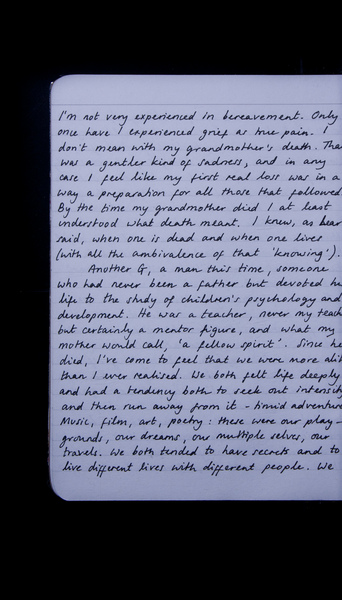 I'm not very experienced in bereavement. Only
once have I experienced grief as true pain. I
don't mean with my grandmother's death. Tha
was a gentler kind of sadness, and in any
case I feel like my first real loss was in a
way a preparation for all those that followed.
By the time my grandmother died I at least
understood what death meant. I knew, as Lear
said, when one is dead and when one lives
(with all the ambivalence of that 'knowing').
Another G, a man this time, someone
who had never been a father but devoted h
life to the study of children's psychology and
development. He was a teacher, never my teach
but certainly a mentor figure, and what my
mother would call, 'a fellow spirit'. Since he
died, I've come to feel that we were more alik
than I ever realised. We both felt life deeply
and had a tendency both to seek out intensity
and then run away from it - timid adventure
Music, film, art, poetry: these were our play-
grounds, our dreams, our multiple selves, our
travels. We both tended to have secrets and to
live different lives with different people. We